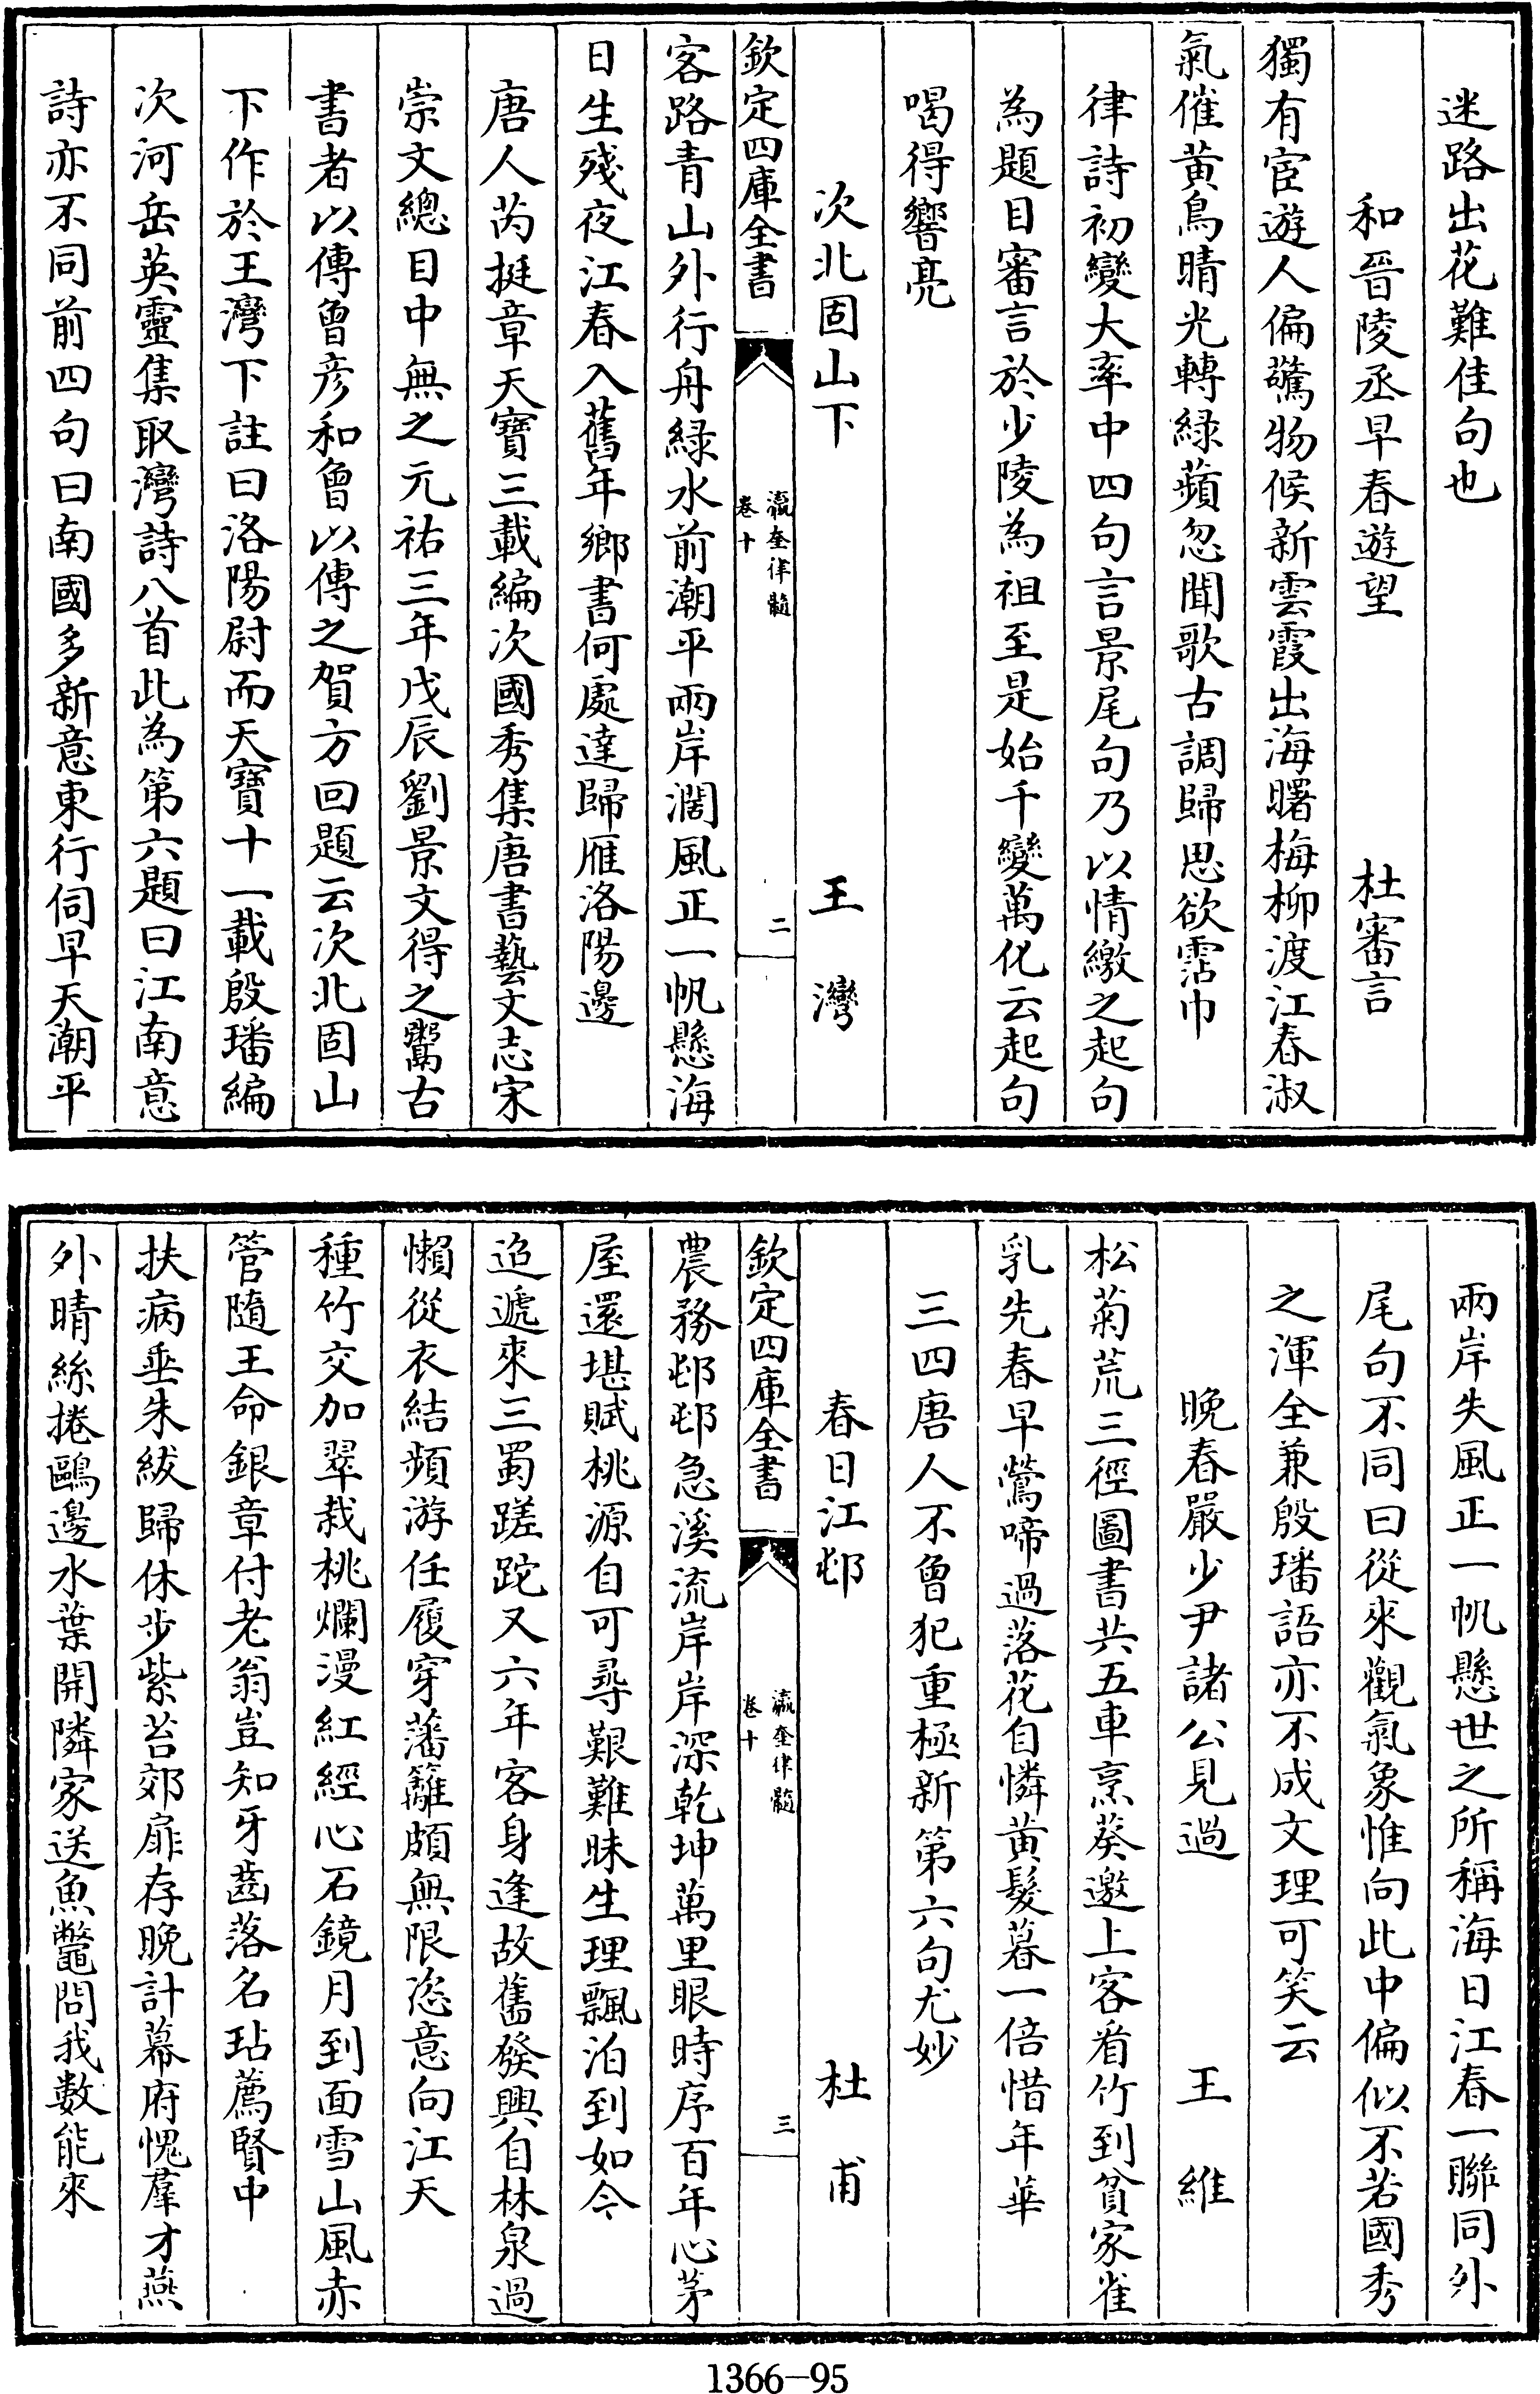 迷路出花難佳句也
和晉陵丞早春遊望 杜審言
獨有宦遊人偏驚物候新雲霞出海曙梅柳渡江春淑
氣催黃鳥晴光轉緑蘋忽聞歌古調歸思欲霑巾
律詩初變大率中四句言景尾句乃以情繳之起句
為題目審言於少陵為祖至是始千變萬化云起句
喝得響亮
次北固山下 王灣
欽定四庫全書 瀛奎律髓 卷十 二
客路青山外行舟緑水前潮平兩岸濶風正一帆懸海
日生殘夜江春入舊年鄉書何處達歸雁洛陽邊
唐人芮挺章天寶三載編次國秀集唐書藝文志宋
崇文總目中無之元祐三年戊辰劉景文得之鬻古
書者以傳曾彦和曾以傳之賀方回題云次北固山
下作於王灣下註曰洛陽尉而天寶十一載殷璠編
次河岳英靈集取灣詩八首此為第六題曰江南意
詩亦不同前四句曰南國多新意東行伺早天潮平
兩岸失風正一帆懸世之所稱海日江春一聯同外
尾句不同曰從來觀氣象惟向此中偏似不若國秀
之渾全兼殷璠語亦不成文理可笑云
晚春嚴少尹諸公見過 王維
松菊荒三徑圖書共五車烹葵邀上客看竹到貧家雀
乳先春早鶯啼過落花自憐黃髮暮一倍惜年華
三四唐人不曾犯重極新第六句尤妙
春日江邨 杜甫
欽定四庫全書 瀛奎律髓 卷十 三
農務邨邨急溪流岸岸深乾坤萬里眼時序百年心茅
屋還堪賦桃源自可尋艱難昧生理飄泊到如今
迢遞來三蜀蹉跎又六年客身逢故舊發興自林泉過
懶從衣結頻游任履穿藩籬頗無限恣意向江天
種竹交加翠栽桃爛漫紅經心石鏡月到面雪山風赤
管隨王命銀章付老翁豈知牙齒落名玷薦賢中
扶病垂朱紱歸休步紫苔郊扉存晚計幕府愧羣才燕
外晴絲捲鷗邊水葉開隣家送魚鼈問我數能來
1366-95